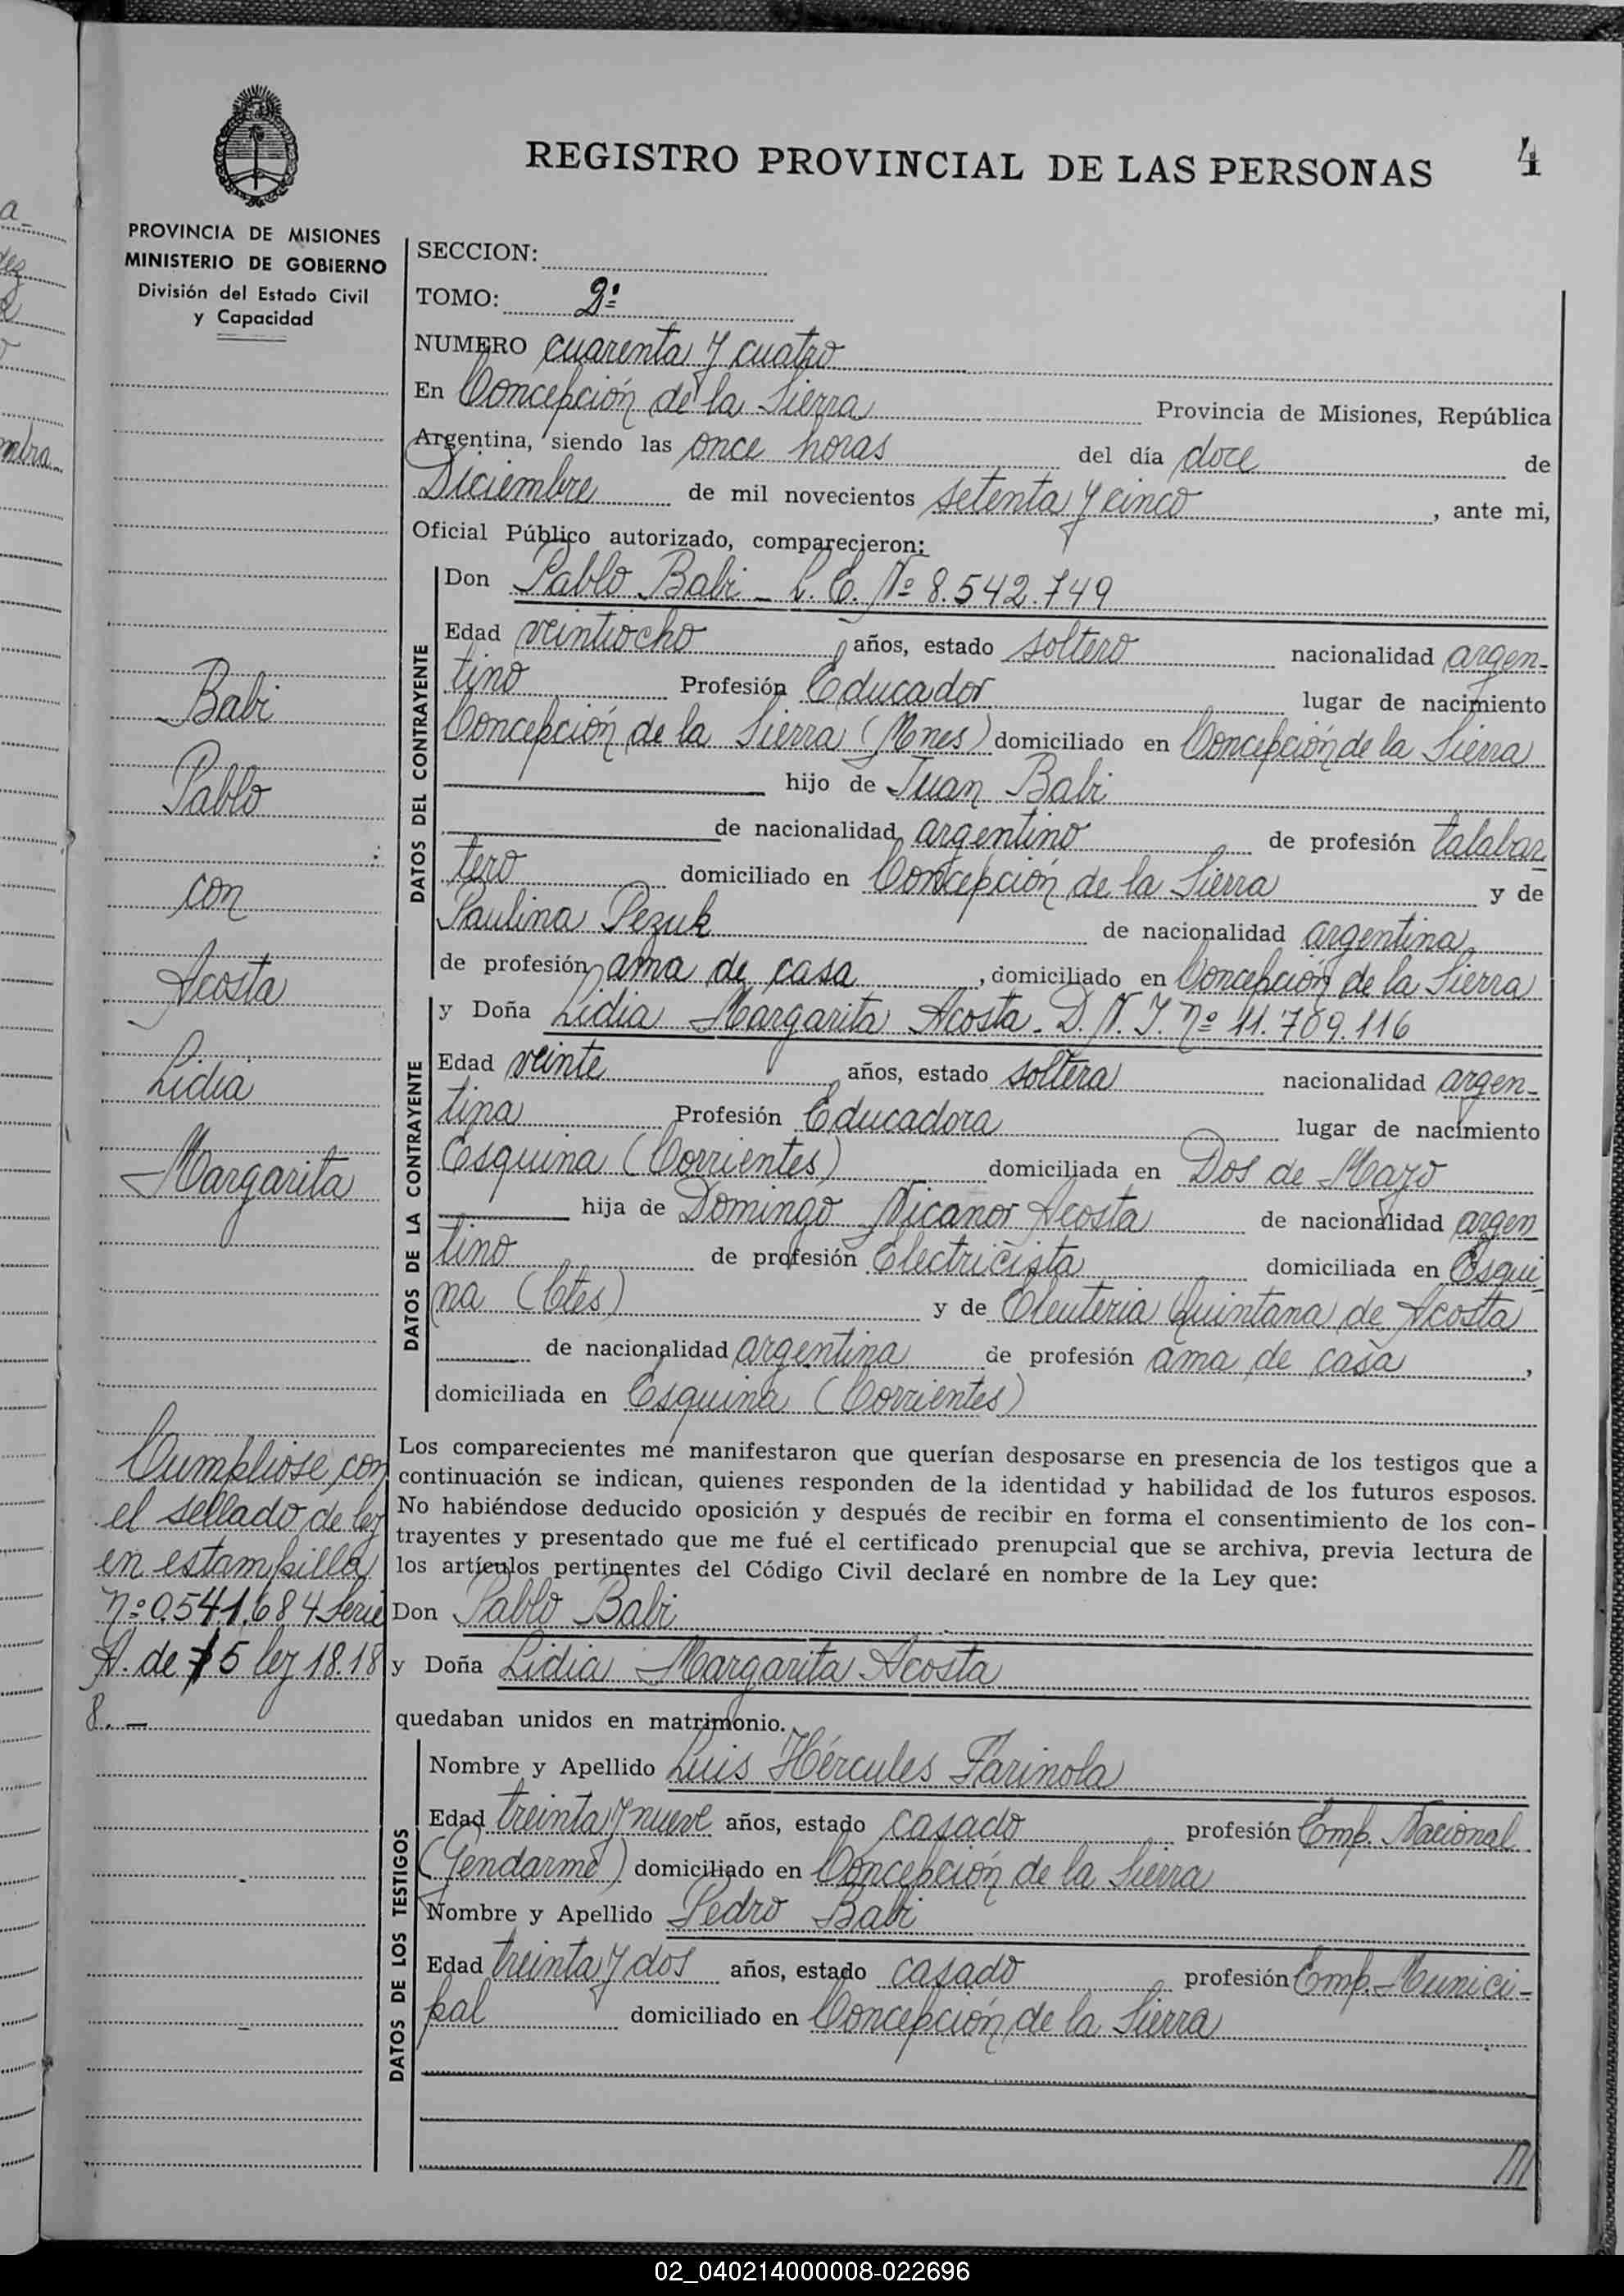 REGISTRO PROVINCIAL DE LAS PERSONAS
4
PROVINCIA DE MISIONES
MINISTERIO DE GOBIERNO
División del Estado Civil
y Capacidad
SECCION:
TOMO: 2º
NUMERO cuarenta y cuatro
En Concepción de la Sierra Provincia de Misiones, República
Argentina, siendo las once horas del día doce de
Diciembre de mil novecientos setenta y cinco, ante mi,
Oficial Público autorizado, comparecieron:
DATOS DEL CONTRAYENTE
Don Pablo Babi - L. E. Nº 8.542.749
Edad veintiocho años, estado soltero nacionalidad argen-
tino Profesión Educador lugar de nacimiento
Concepción de la Sierra (Mnes) domiciliado en Concepción de la Sierra
hijo de Juan Babi
de nacionalidad argentino de profesión talabar
tero domiciliado en Concepción de la Sierra y de
Paulina Pezuk de nacionalidad argentina
de profesión ama de casa, domiciliado en Concepción de la Sierra
DATOS DE LA CONTRAYENTE
y Doña Lidia Margarita Acosta - D. N. I. Nº 11.709.116
Edad veinte años, estado soltera nacionalidad argen-
tina Profesión Educadora lugar de nacimiento
Esquina (Corrientes) domiciliada en Dos de Mayo
hija de Domingo Nicanor Acosta de nacionalidad argen
tino de profesión Electricista domiciliada en Esqui-
na (Ctes) y de Eleuteria Quintana de Acosta
de nacionalidad argentina de profesión ama de casa,
domiciliada en Esquina (Corrientes)
Los comparecientes me manifestaron que querían desposarse en presencia de los testigos que a
continuación se indican, quienes responden de la identidad y habilidad de los futuros esposos.
No habiéndose deducido oposición y después de recibir en forma el consentimiento de los con-
trayentes y presentado que me fué el certificado prenupcial que se archiva, previa lectura de
los artículos pertinentes del Código Civil declaré en nombre de la Ley que:
Don Pablo Babi
y Doña Lidia Margarita Acosta
quedaban unidos en matrimonio.
DATOS DE LOS TESTIGOS
Nombre y Apellido Luis Hércules Farinola
Edad treinta y nueve años, estado casado profesión Emp. Nacional
(Gendarme) domiciliado en Concepción de la Sierra
Nombre y Apellido Pedro Babi
Edad treinta y dos años, estado casado profesión Emp. Munici-
pal domiciliado en Concepción de la Sierra
Babi
Pablo
con
Acosta
Lidia
Margarita
Cumpliose con
el sellado de ley
en estampilla
nº 0541.684 Serie
A. de $ 5 ley 18.18
8. -
02_040214000008-022696